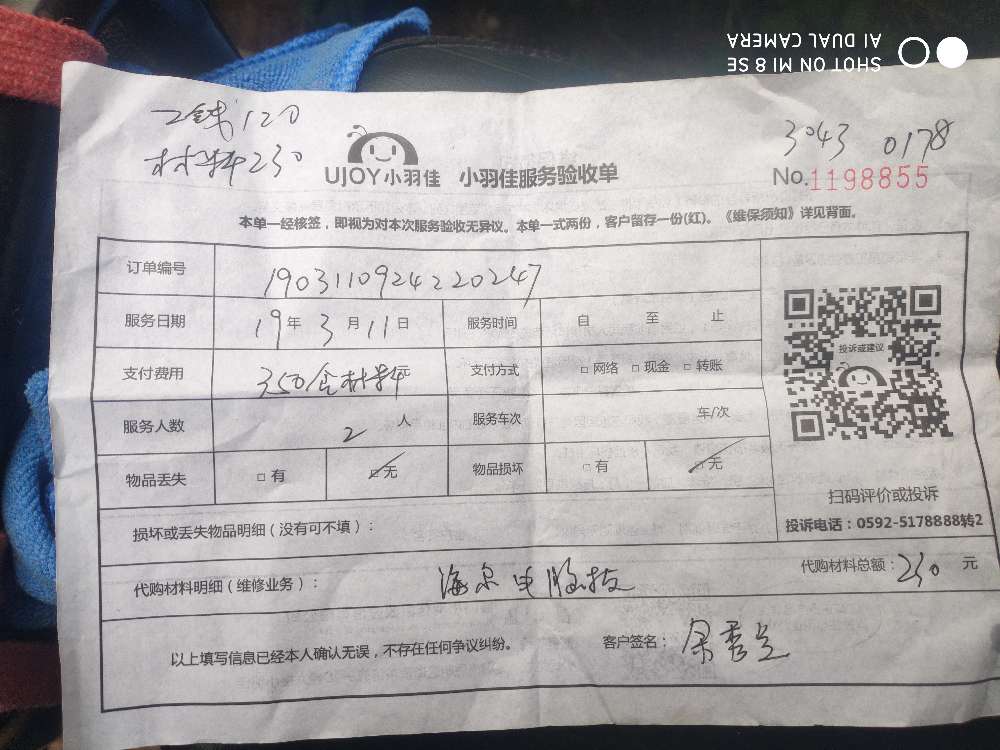 SHOT ON MI 8 SE
AI DUAL CAMERA
工钱120
材料230
3043 0178
UJOY小羽佳 小羽佳服务验收单
No.1198855
本单一经核签，即视为对本次服务验收无异议。本单一式两份，客户留存一份(红)。《维保须知》详见背面。
订单编号 1903110924220247
服务日期 19年3月11日 服务时间 自 至 止
支付费用 350含材料 元 支付方式 □网络 □现金 □转账
服务人数 2 人 服务车次 车/次
物品丢失 □有 □无 物品损坏 □有 □无
投诉或建议
扫码评价或投诉
投诉电话：0592-5178888转2
损坏或丢失物品明细（没有可不填）：
代购材料明细（维修业务）： 海尔电脑板 代购材料总额：230 元
以上填写信息已经本人确认无误，不存在任何争议纠纷。 客户签名：